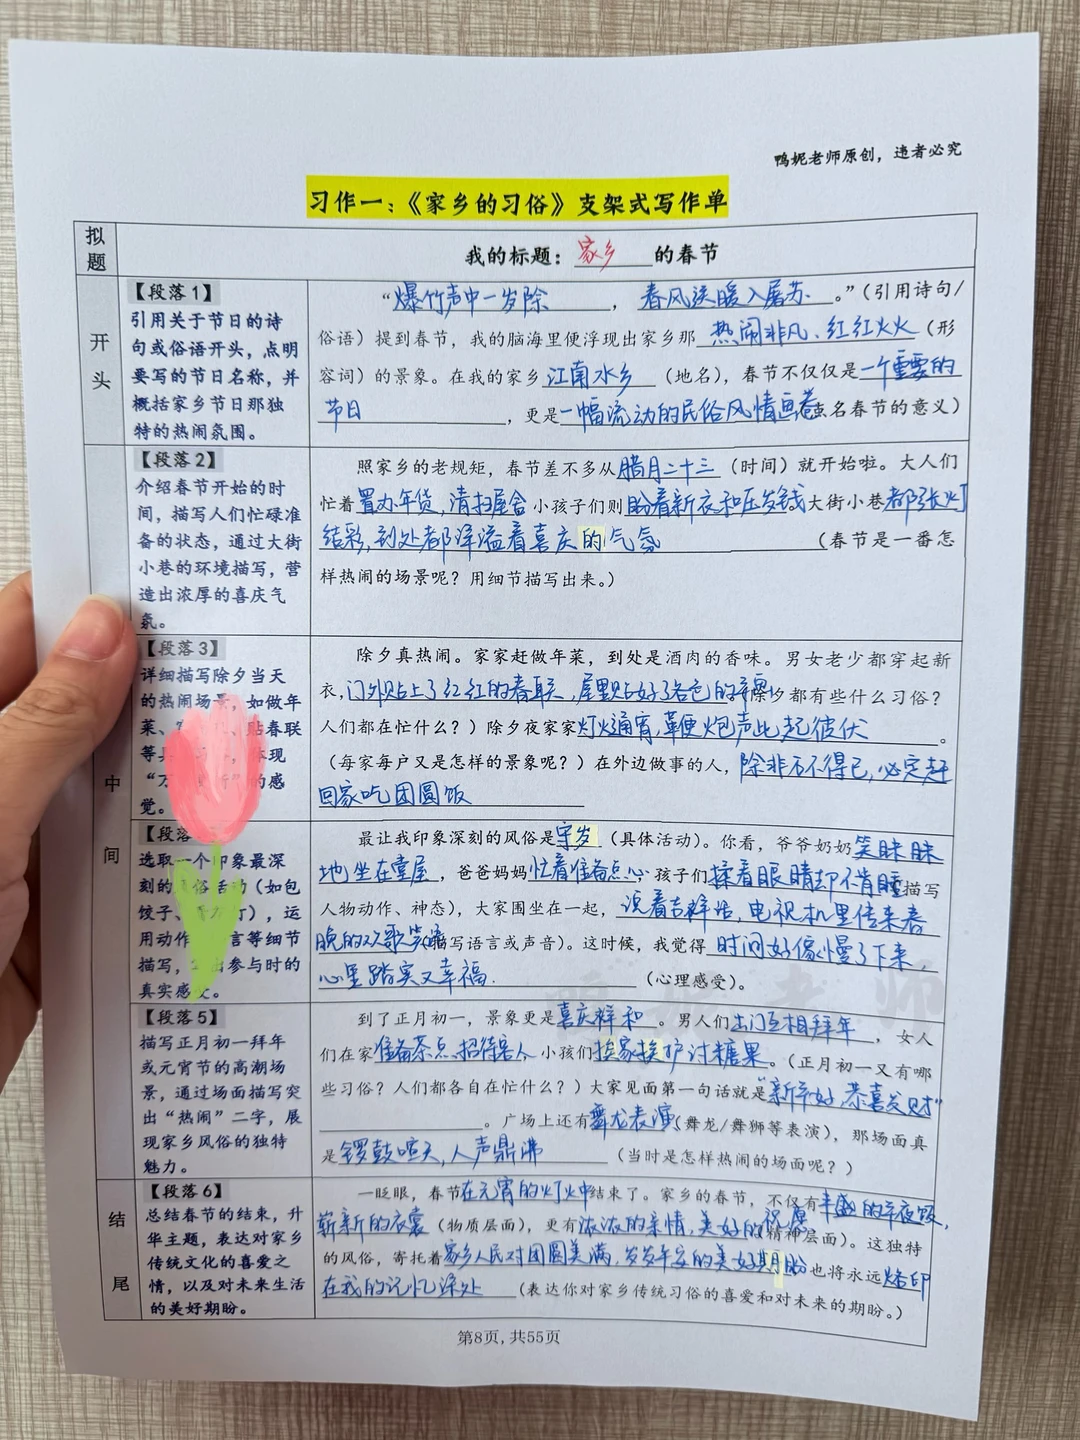 鸭妮老师原创，违者必究
习作一：《家乡的习俗》支架式写作单
拟题
我的标题：家乡的春节
开头
【段落1】
引用关于节日的诗
句或俗语开头，点明
要写的节日名称，并
概括家乡节日那独
特的热闹氛围。
“爆竹声中一岁除，春风送暖入屠苏。”（引用诗句/
俗语）提到春节，我的脑海里便浮现出家乡那热闹非凡、红红火火（形
容词）的景象。在我的家乡江南水乡（地名），春节不仅仅是一个重要的
节日，更是一幅流动的民俗风情画卷名春节的意义）
中间
【段落2】
介绍春节开始的时
间，描写人们忙碌准
备的状态，通过大街
小巷的环境描写，营
造出浓厚的喜庆气
氛。
照家乡的老规矩，春节差不多从腊月二十三（时间）就开始啦。大人们
忙着置办年货，清扫屋舍小孩子们则盼着新衣和压岁钱大街小巷都张灯
结彩，到处都洋溢着喜庆的气氛（春节是一番怎
样热闹的场景呢？用细节描写出来。）
【段落3】
详细描写除夕当天
的热闹场景，如做年
菜、贴春联
等具体现
“万的感
觉。
除夕真热闹。家家赶做年菜，到处是酒肉的香味。男女老少都穿起新
衣，门外贴上了红红的春联，屋里贴好了各色的年画除夕都有些什么习俗？
人们都在忙什么？）除夕夜家家灯火通宵，鞭炮声此起彼伏。
（每家每户又是怎样的景象呢？）在外边做事的人，除非万不得已，必定赶
回家吃团圆饭
【段落
选取一个印象最深
刻的俗活动（如包
饺子、），运
用动作言等细节
描写，出参与时的
真实感受。
最让我印象深刻的风俗是守岁（具体活动）。你看，爷爷奶奶笑眯眯
地坐在堂屋，爸爸妈妈忙着准备点心孩子们揉着眼睛却不肯睡描写
人物动作、神态），大家围坐在一起，说着吉祥话，电视机里传来春
晚的欢歌笑语描写语言或声音）。这时候，我觉得时间好像慢了下来，
心里踏实又幸福.（心理感受）。
【段落5】
描写正月初一拜年
或元宵节的高潮场
景，通过场面描写突
出“热闹”二字，展
现家乡风俗的独特
魅力。
到了正月初一，景象更是喜庆祥和。男人们出门互相拜年，女人
们在家准备茶点、招待客人小孩们挨家挨户讨糖果。（正月初一又有哪
些习俗？人们都各自在忙什么？）大家见面第一句话就是“新年好，恭喜发财”
。广场上还有舞龙表演（舞龙/舞狮等表演），那场面真
是锣鼓喧天，人声鼎沸（当时是怎样热闹的场面呢？）
结尾
【段落6】
总结春节的结束，升
华主题，表达对家乡
传统文化的喜爱之
情，以及对未来生活
的美好期盼。
一眨眼，春节在元宵的灯火中结束了。家乡的春节，不仅有丰盛的年夜饭，
崭新的衣裳（物质层面），更有浓浓的亲情，美好的祝愿（精神层面）。这独特
的风俗，寄托着家乡人民对团圆美满，岁岁平安的美好期盼也将永远烙印
在我的记忆深处（表达你对家乡传统习俗的喜爱和对未来的期盼。）
第8页，共55页